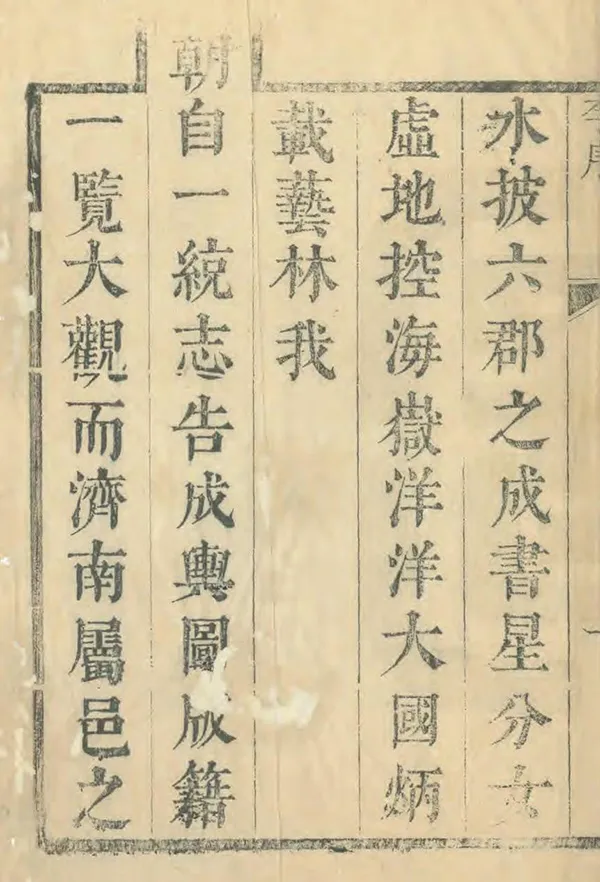 水披六郡之成書星分女
虛地控海嶽洋洋大國炳
載藝林我
朝自一統志告成輿圖版籍
一覽大觀而濟南屬邑之